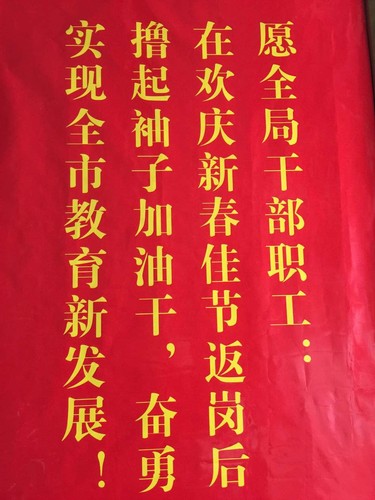 愿全局干部职工：
在欢庆新春佳节返岗后
撸起袖子加油干，奋勇
实现全市教育新发展！